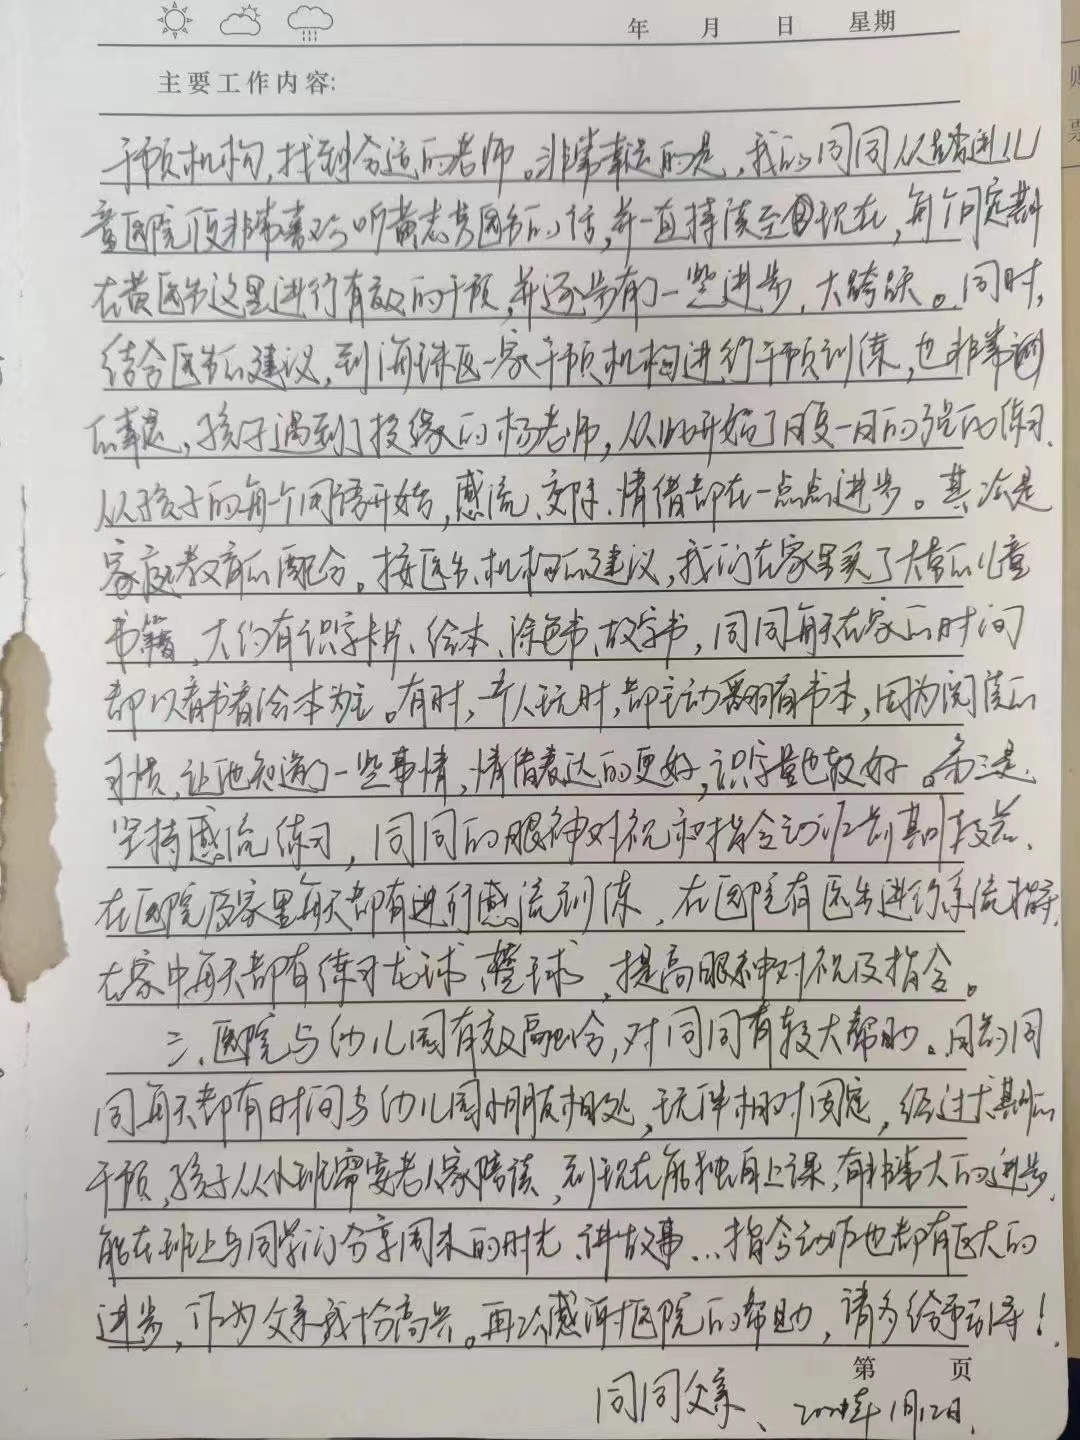 年 月 日 星期
主要工作内容:
干预机构，找到合适的老师。非常幸运的是，我的同同从踏进儿
童医院便非常喜欢听黄志英医生的话，并一直持续至现在，每个月定期
在黄医生这里进行有效的干预，并逐步有了一些进步，大跨跃。同时，
结合医生的建议，到海珠区一家干预机构进行干预训练，也非常
的幸运，孩子遇到了投缘的杨老师，从此开始了日复一日的强的练习、
从孩子的每个闭语开始，感统、交际、情借都在一点点进步。其次是
家庭教育的配合。按医生、机构的建议，我们在家里买了大量的儿童
书籍，大约有识字卡片、绘本、涂色书、故字书，同同每天在家的时间
都以看书看绘本为主。有时，一个人玩时，都主动翻看书本，因为阅读的
习惯，让他知道了一些事情，情借表达的更好，识字量也较好。第三是
坚持感统练习，同同的眼神对视和指令动作前期较差、
在医院及家里每天都有进行感统训练，在医院有医生进行系统指导，
在家中每天都有练习龙球 整球，提高眼神对视及指令。
三、医院与幼儿园有效融合，对同同有较大帮助。目前同
同每天都有时间与幼儿园小朋友相处，玩伴相对固定，经过长期的
干预，孩子从小班需要老人家陪读，到现在能独自上课，有非常大的进步，
能在班上与同学们分享周末的时光、讲故事…指令动作也都有巨大的
进步，作为父亲我十分高兴。再次感谢医院的帮助，请多给予引导！
第 页
同同父亲、 2024年1月12日.